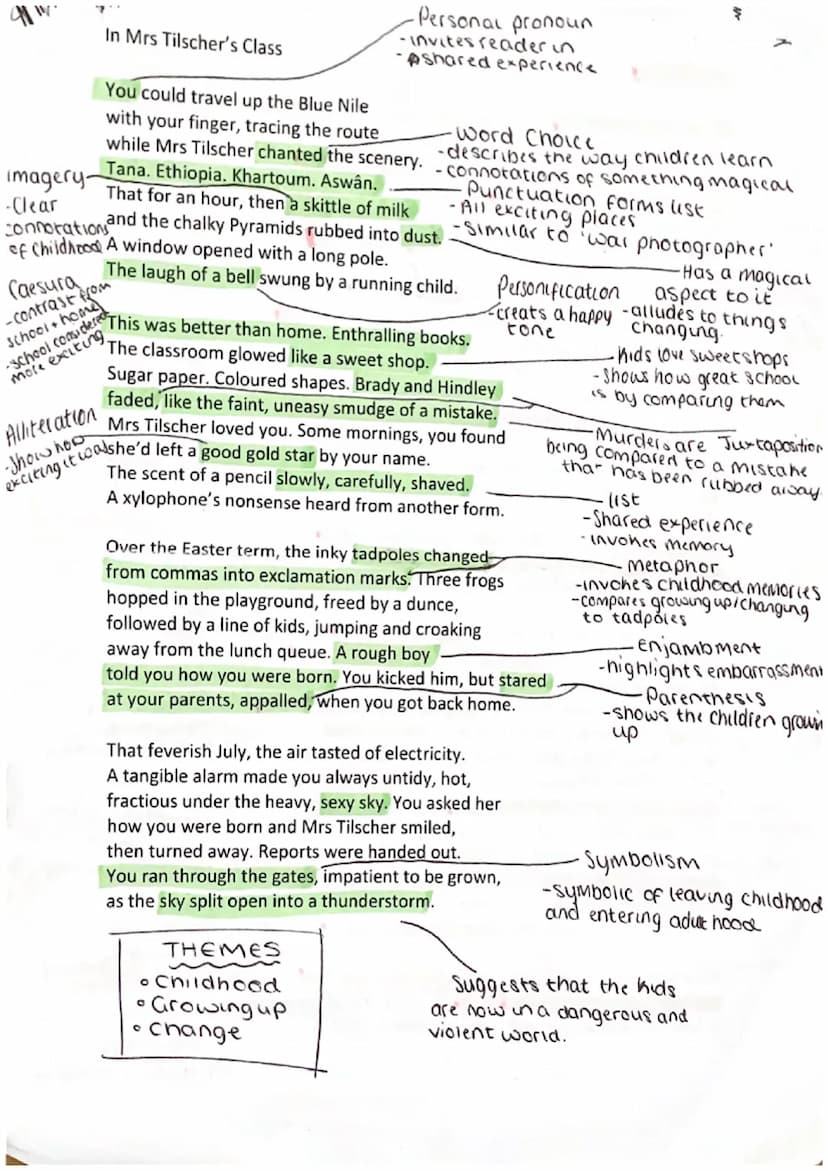 In Mrs Tilscher's Class
Personal pronoun
-invites reader in
-shared experience
You could travel up the Blue Nile
with your finger, tracing the route
while Mrs Tilscher chanted the scenery.
Word Choice
-describes the way children learn
-connotations of something magical
Tana. Ethiopia. Khartoum. Aswân.
Punctuation forms list
-All exciting places
-Similar to 'war photographer'
imagery
-Clear
connotations
of childhood
That for an hour, then a skittle of milk
and the chalky Pyramids rubbed into dust.
Has a magical
aspect to it
-alludes to things
changing.
A window opened with a long pole.
The laugh of a bell swung by a running child.
Personification
-creats a happy
tone
Caesura
-contrast from
school + home
-school considered
more exciting
This was better than home. Enthralling books.
The classroom glowed like a sweet shop.
-kids love sweetshops
-shows how great school
is by comparing them
Sugar paper. Coloured shapes. Brady and Hindley
faded, like the faint, uneasy smudge of a mistake.
-Murders are Juxtaposition
being compared to a mistake
that has been rubbed away.
Alliteration
-Show how
exciting it was
Mrs Tilscher loved you. Some mornings, you found
she'd left a good gold star by your name.
The scent of a pencil slowly, carefully, shaved.
list
-Shared experience
-invokes memory
A xylophone's nonsense heard from another form.
Over the Easter term, the inky tadpoles changed
from commas into exclamation marks. Three frogs
metaphor
-invokes childhood memories
-compares growing up/changing
to tadpoles
hopped in the playground, freed by a dunce,
followed by a line of kids, jumping and croaking
away from the lunch queue. A rough boy
enjambment
-highlights embarrassment
told you how you were born. You kicked him, but stared
at your parents, appalled, when you got back home.
Parenthesis
-shows the children growin
up
That feverish July, the air tasted of electricity.
A tangible alarm made you always untidy, hot,
fractious under the heavy, sexy sky. You asked her
how you were born and Mrs Tilscher smiled,
then turned away. Reports were handed out.
You ran through the gates, impatient to be grown,
as the sky split open into a thunderstorm.
Symbolism
-symbolic of leaving childhood
and entering adulthood
Suggests that the kids
are now in a dangerous and
violent world.
THEMES
Childhood
Growing up
Change